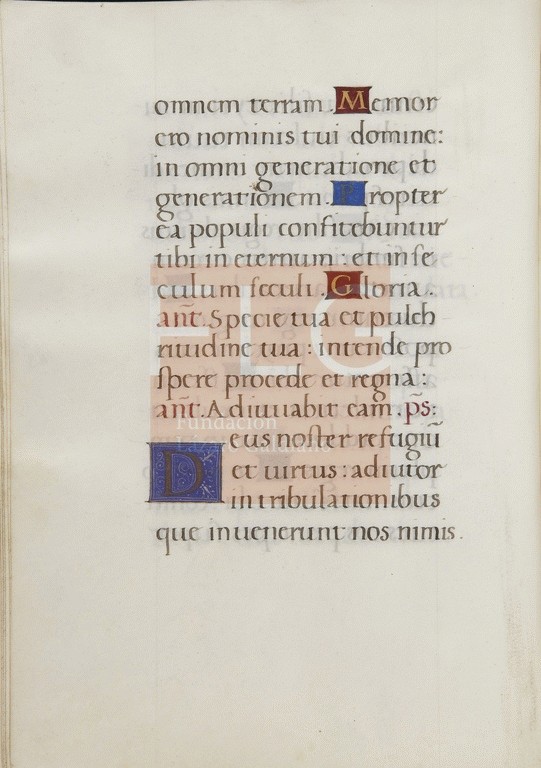 omnem terram. Memor
ero nominis tui domine:
in omni generatione et
generationem. Propter
ea populi confitebuntur
tibi in eternum: et in se
culum seculi. Gloria.
ant̄. Specie tua et pulch
ritudine tua: intende pro
spere procede et regna:
ant̄. Adiuuabit eam. ps̄:
Deus noster refugiū
et uirtus: adiutor
in tribulationibus
que inuenerunt nos nimis.
FLG
Fundación
Lázaro Galdiano